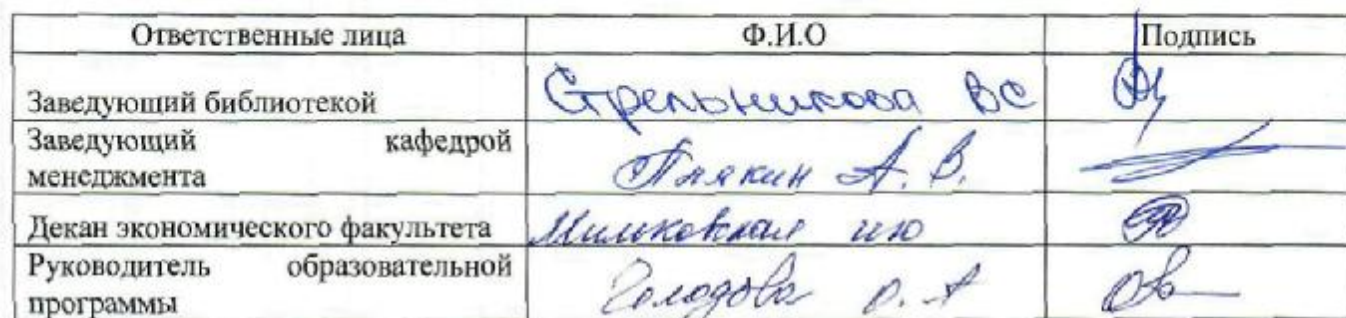 Ответственные лица Ф.И.О Подпись
Заведующий библиотекой Стрельникова ВС
Заведующий кафедрой
менеджмента А. В.
Декан экономического факультета ию
Руководитель образовательной
программы О. А